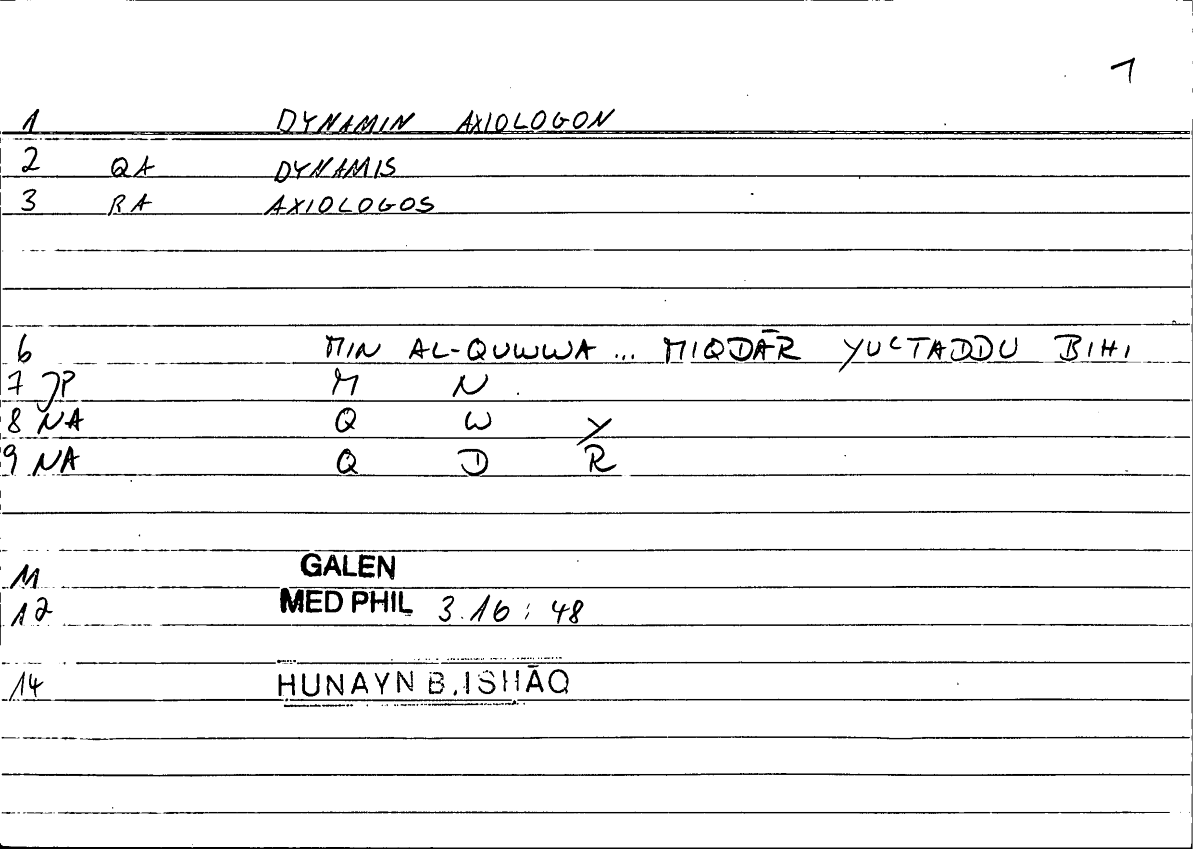 1
1 DYNAMIN AXIOLOGON
2 QA DYNAMIS
3 RA AXIOLOGOS
6 MIN AL-QUWWA ... MIQDĀR YUCTADDU BIHI
7 JP M N
8 NA Q W Y
9 NA Q D R
11 GALEN
12 MED PHIL 3.16 : 48
14 HUNAYN B. ISḤĀQ